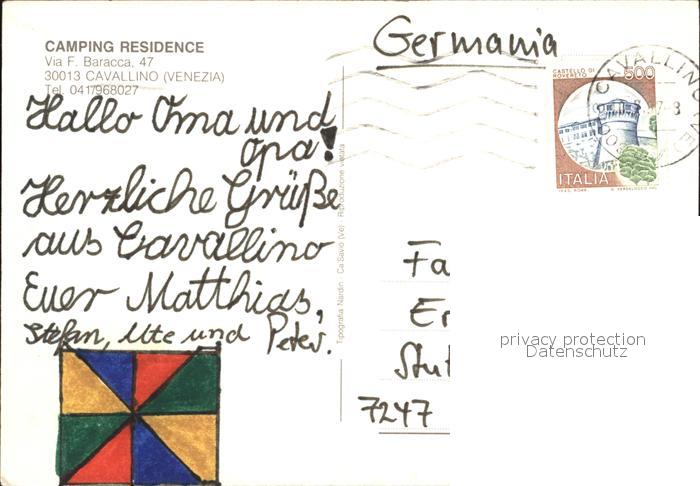 CAMPING RESIDENCE
Via F. Baracca, 47
30013 CAVALLINO (VENEZIA)
Tel. 041/968027
Hallo Oma und
Opa!
Herzliche Grüße
aus Cavallino
Euer Matthias,
Stefan, Ute und Peter.
Tipografia Nardin Ca'Savio (Ve) Riproduzione vietata
Germania
CASTELLO DI
ROVERETO
500
ITALIA
CAVALLINO
Fa
Er
Stut
7247
privacy protection
Datenschutz